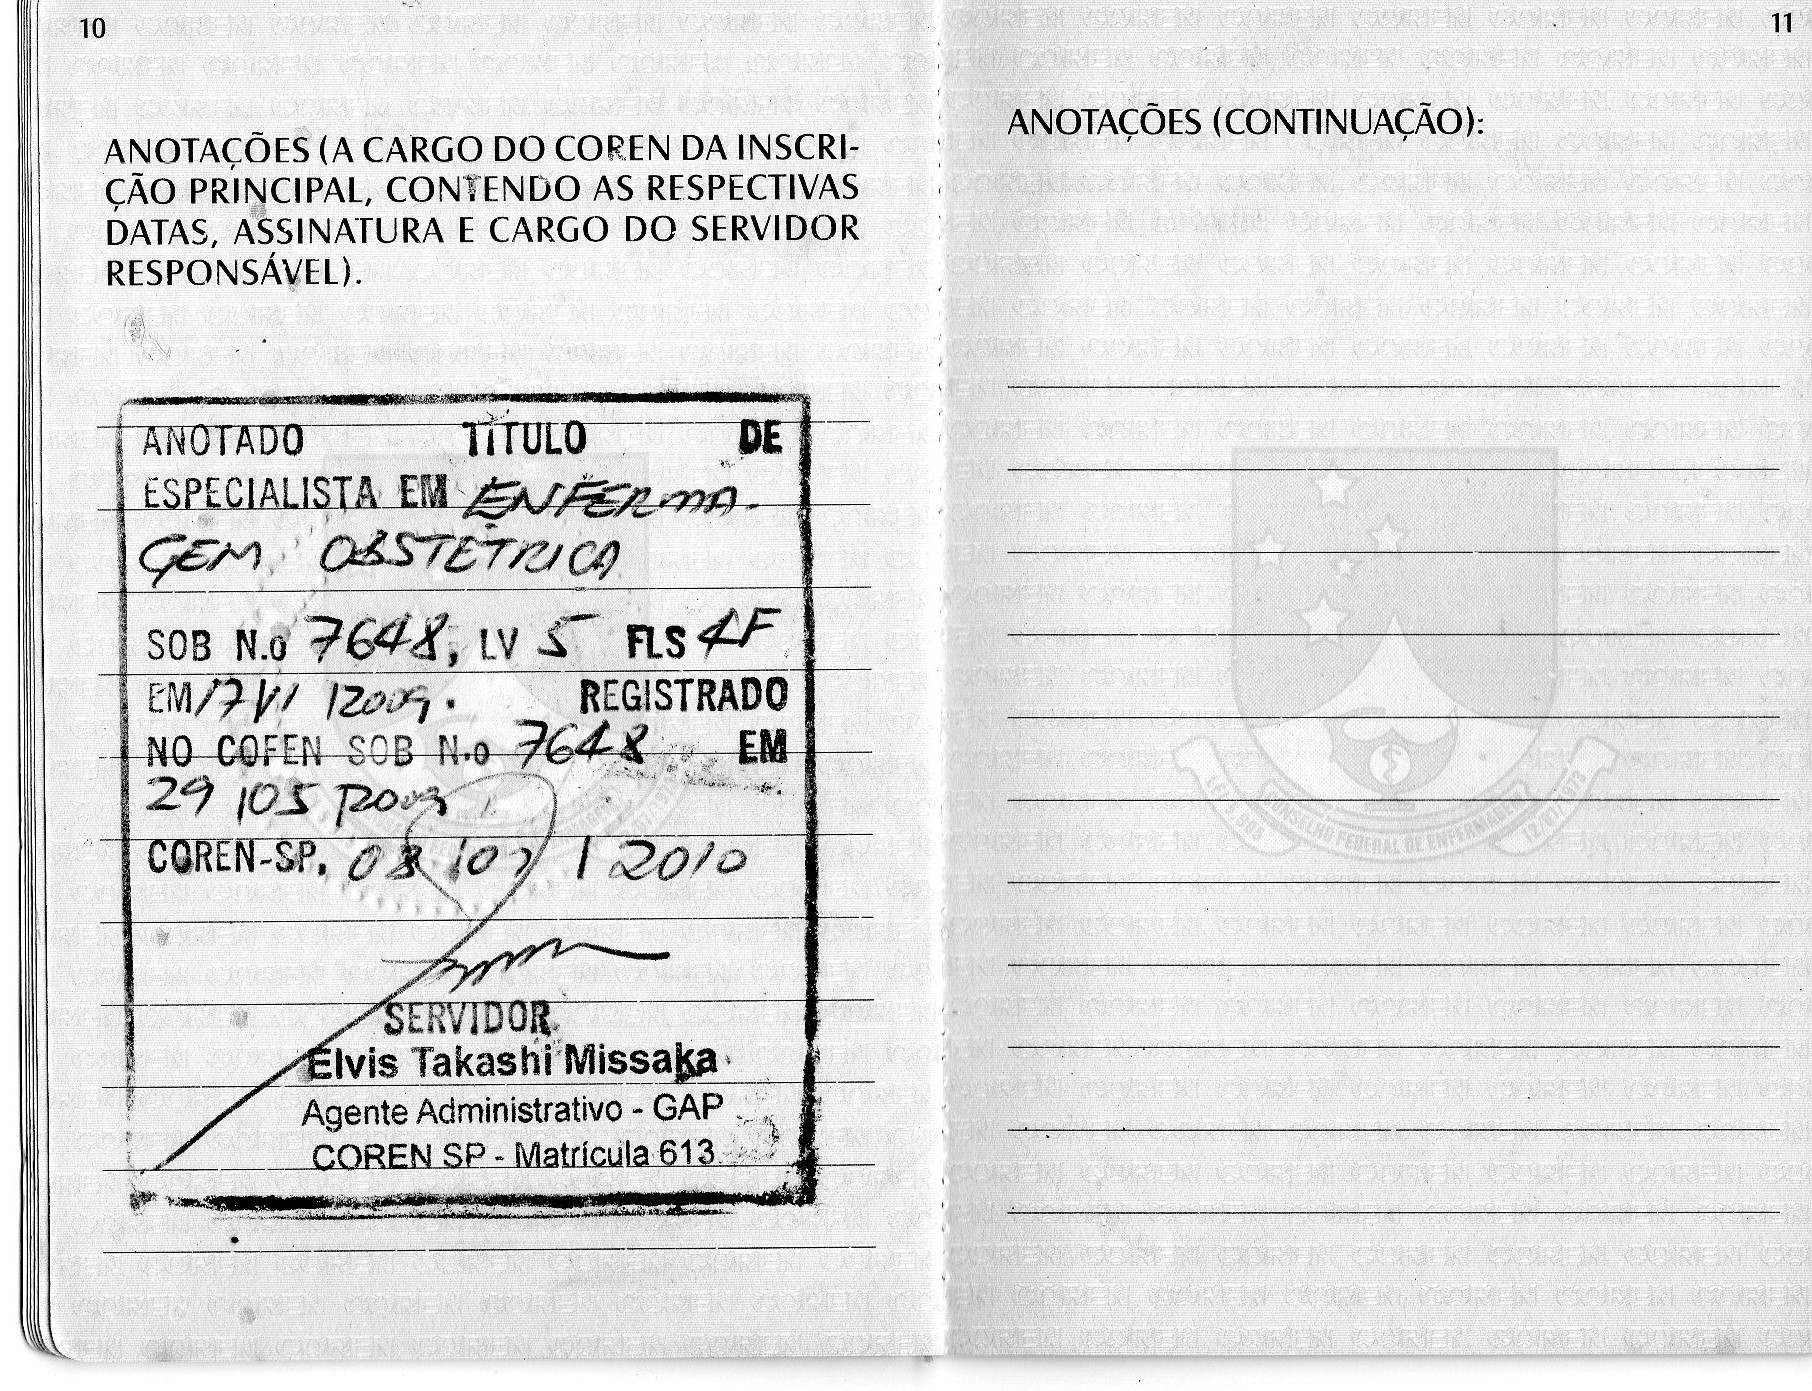 10
ANOTAÇÕES (A CARGO DO COREN DA INSCRI-
ÇÃO PRINCIPAL, CONTENDO AS RESPECTIVAS
DATAS, ASSINATURA E CARGO DO SERVIDOR
RESPONSÁVEL).
ANOTADO TÍTULO DE
ESPECIALISTA EM ENFERMA-
GEM OBSTÉTRICA
SOB N.o 7648, LV 5 FLS
EM /2009. REGISTRADO
NO COFEN SOB N.o 7648 EM
29 /05 /2009
COREN-SP, 08 /07 / 2010
SERVIDOR
Elvis Takashi Missaka
Agente Administrativo - GAP
COREN SP - Matrícula 613
11
ANOTAÇÕES (CONTINUAÇÃO):
CONSELHO FEDERAL DE ENFERMAGEM
12/07/1973